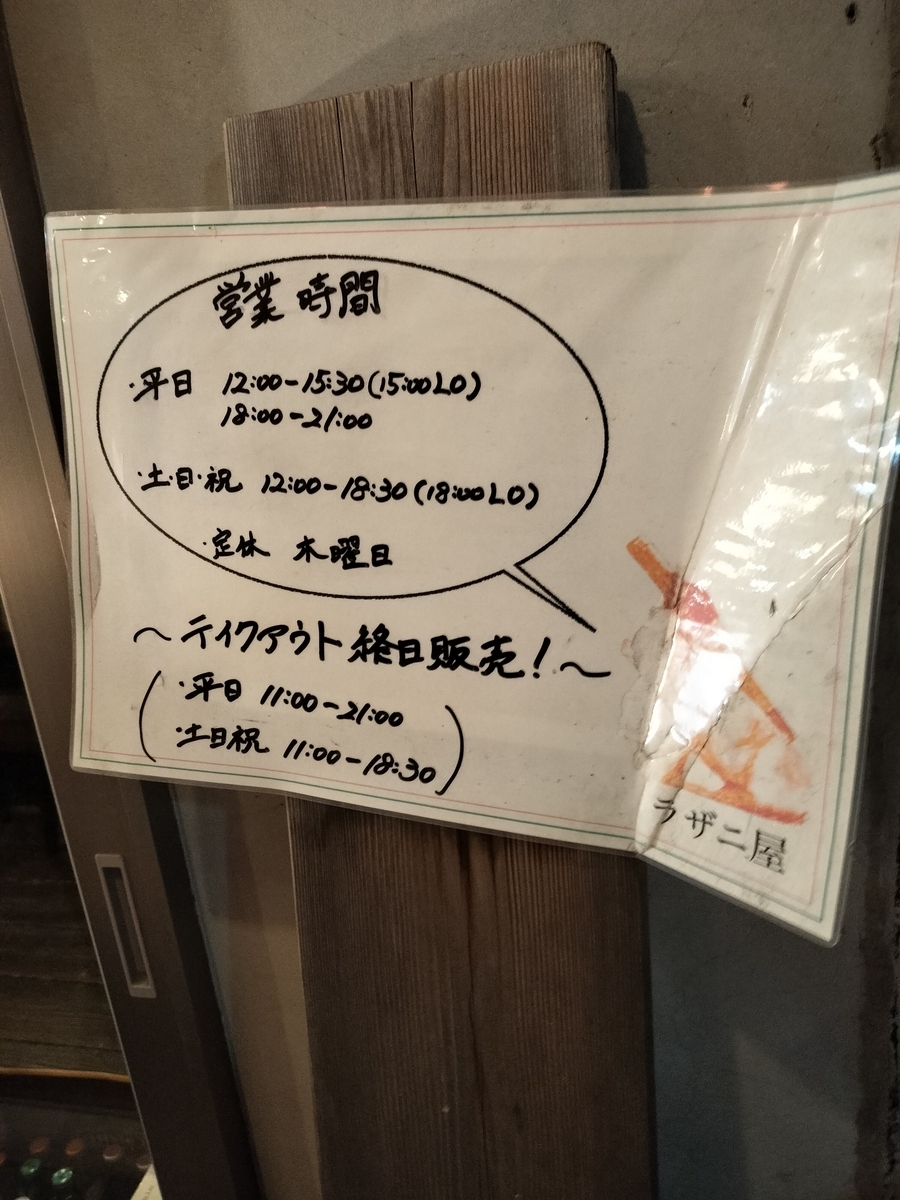 営業時間
・平日 12:00-15:30(15:00LO)
18:00-21:00
・土・日・祝 12:00-18:30(18:00LO)
・定休 木曜日
〜テイクアウト終日販売!〜
・平日 11:00-21:00
・土日祝 11:00-18:30
ラザニ屋